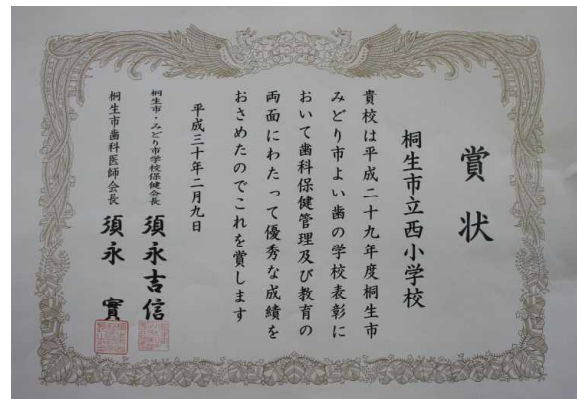 賞状
桐生市立西小学校
貴校は平成二十九年度桐生市
みどり市よい歯の学校表彰に
おいて歯科保健管理及び教育の
両面にわたって優秀な成績を
おさめたのでこれを賞します
平成三十年二月九日
桐生市・みどり市学校保健会長 須永吉信
桐生市歯科医師会長 須永 實